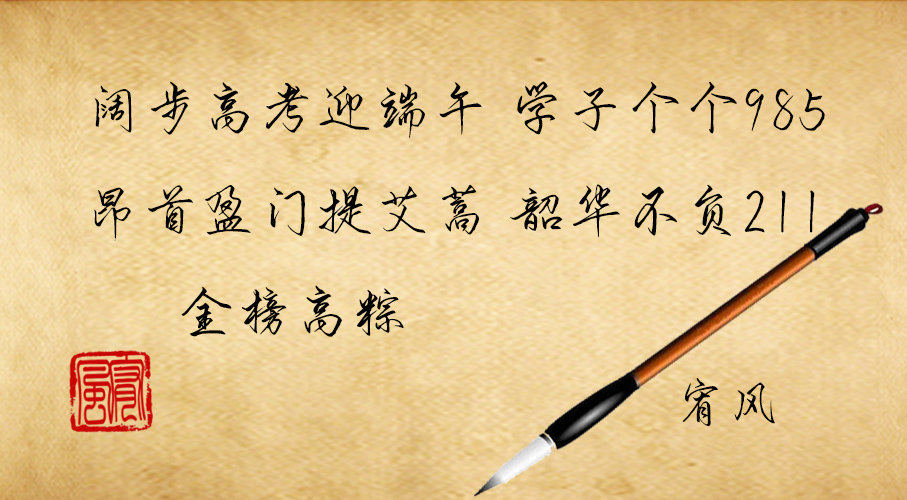 阔步高考迎端午 学子个个985
昂首盈门提艾蒿 韶华不负211
金榜高粽
宥风
宥风